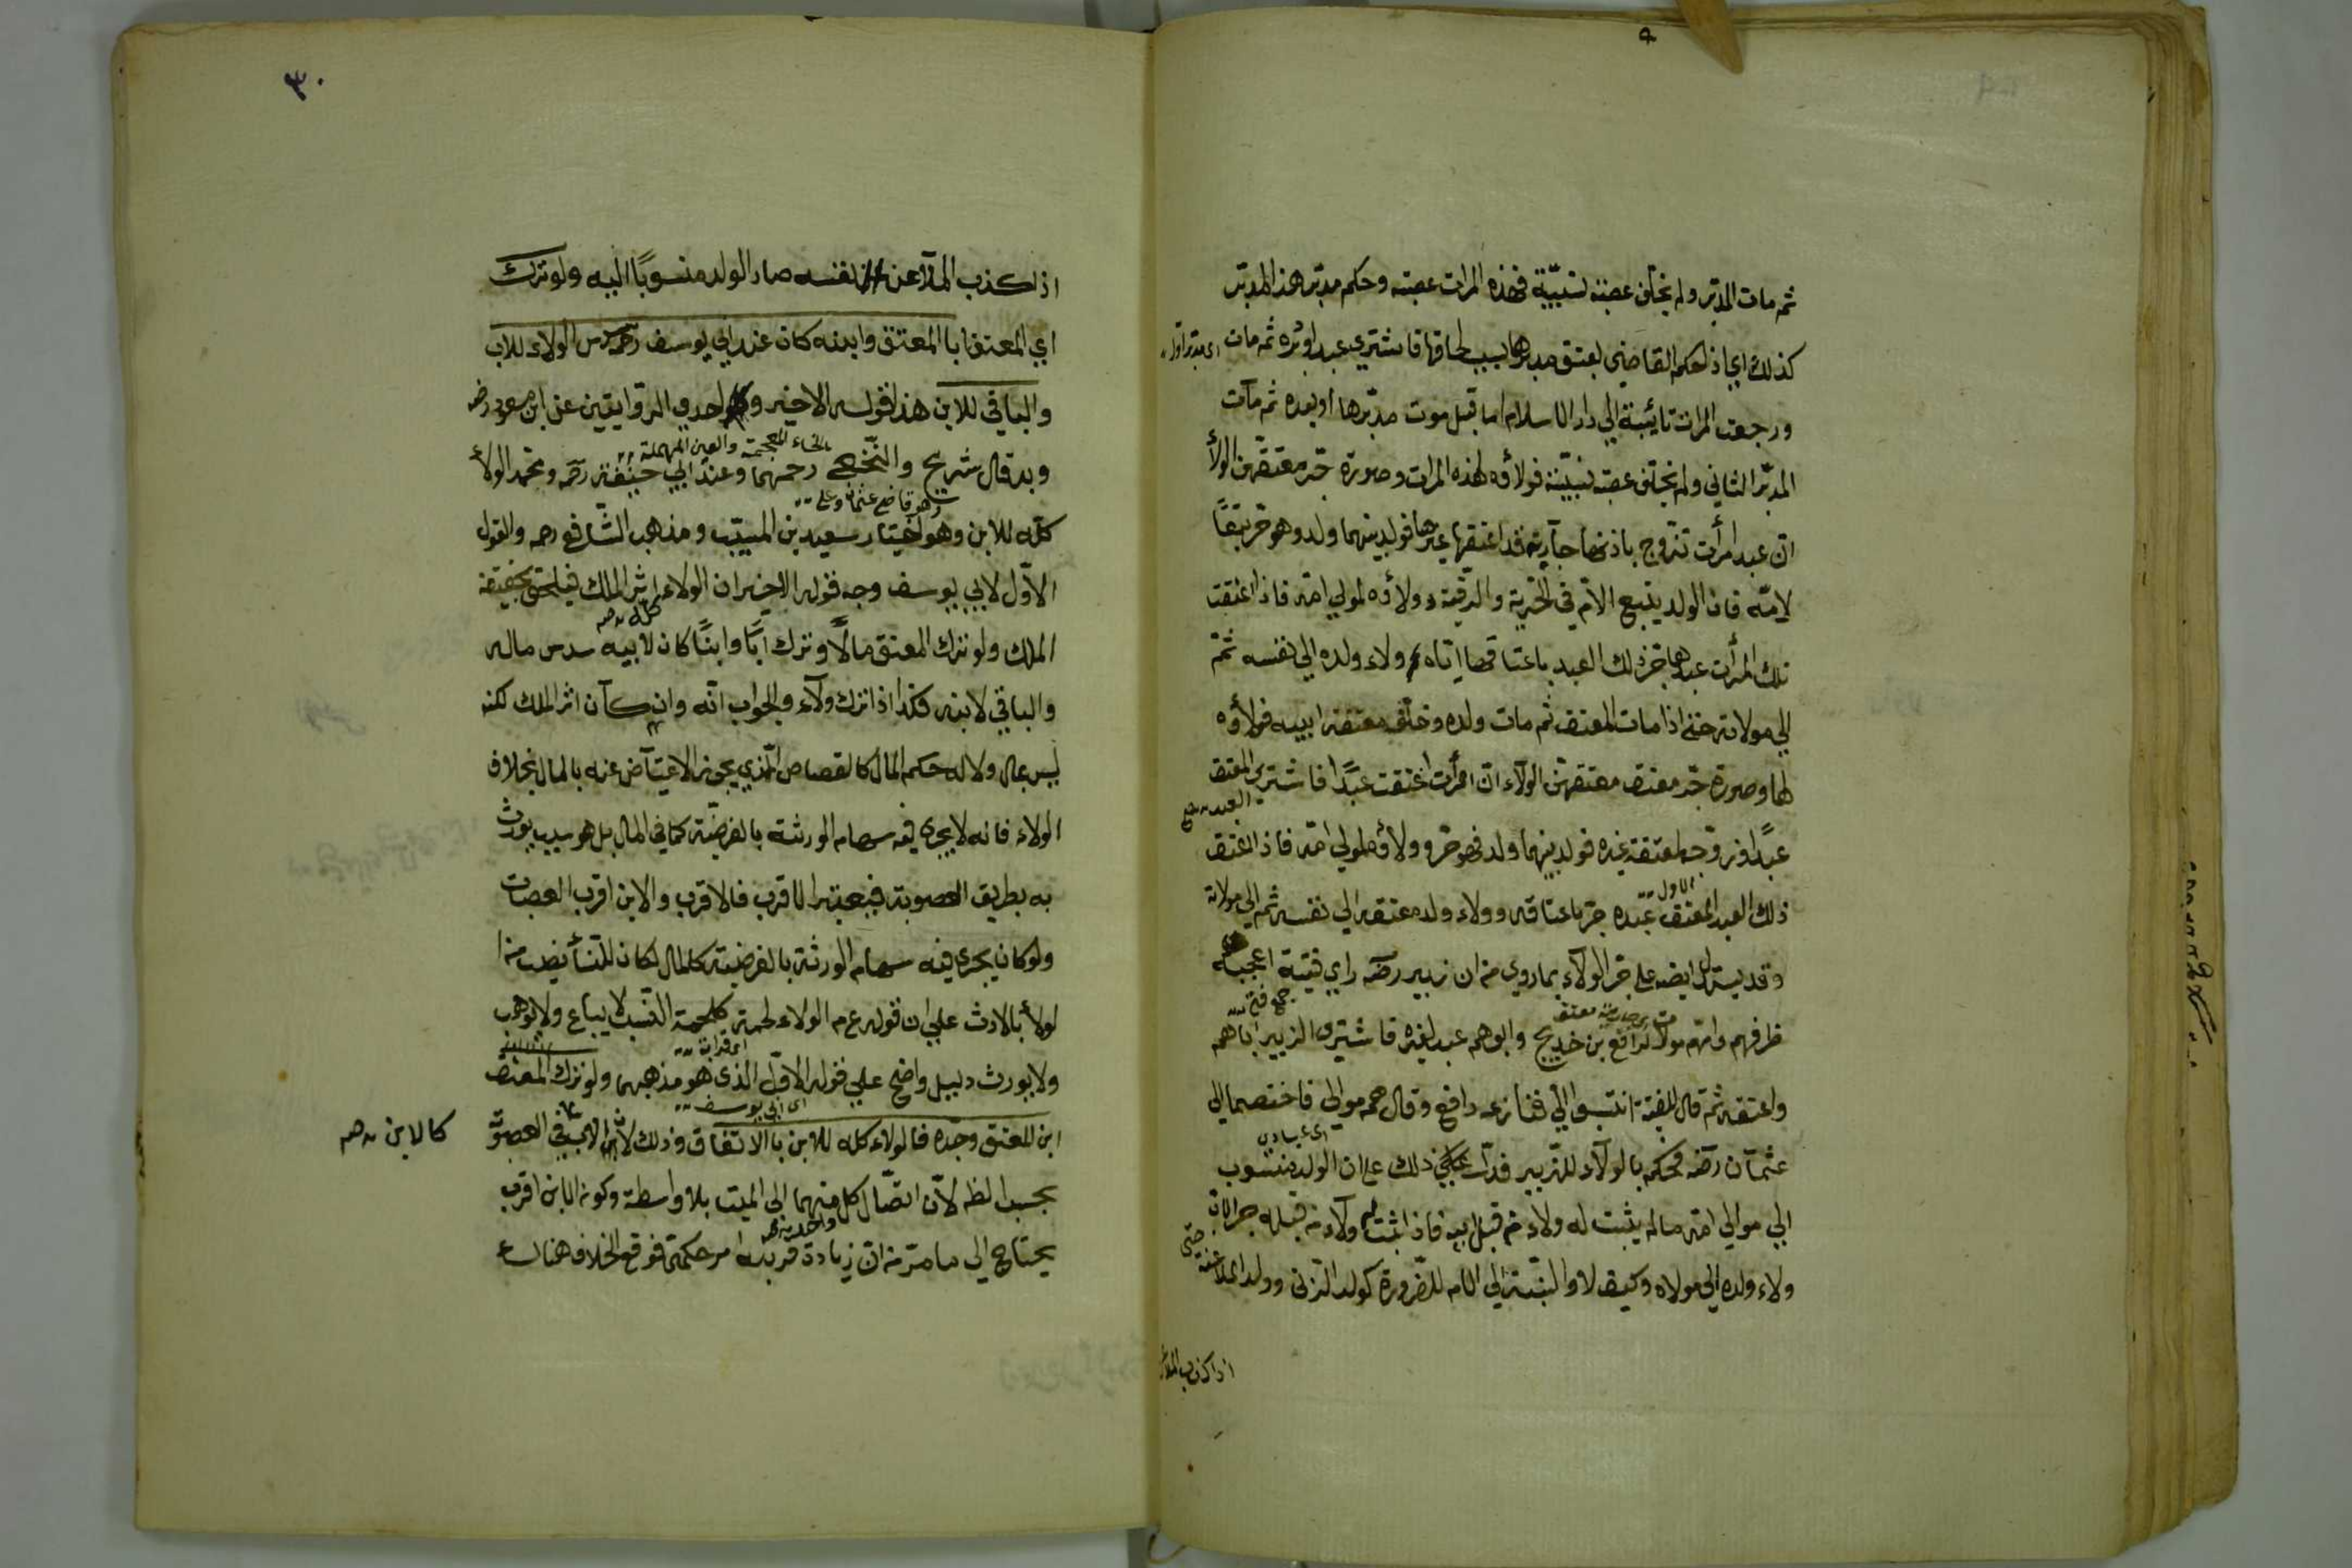 ثم مات المدبّر ولم يخلّف عصبة نسبيّة فهذه المرات عصبته وحكم مدبّر هذا المدبّر
كذلك اي اذا حكم القاضي بعتق مدبرها بسبب لحاقها فاشتري عبدا ودبره ثم مات
ورجعت المرات تائبة الي دار الاسلام اما قبل موت مدبّرها او بعده ثم مات
المدبّر الثاني ولم يخلّف عصبة نسبيّة فولاؤه لهذه المرات وصورة جّر معتقهن الولأ
انّ عبد امرأت تزوج باذنها جارية قد اعتقها غيرها فولد بينهما ولد وهو حّر تبعًا
لامّه فان الولد يتبع الامّ في الحّرية والرقّية وولاؤه لمولي امّه فاذا اعتقت
تلك المرأت عبدها جّر ذلك العبد باعتاقها ايّاه ولاء ولده الي نفسه ثمّ
الي مولاته حتي اذا مات المعتق ثم مات ولده وخلّف معتقة ابيه فولاؤه
لها وصورة جّر معتق معتقهنّ الولاء انّ امرأت اعتقت عبدًا فاشتري المعتق
العبد
عبدًا وزوّجه بمعتقة غيره فولد بينهما ولد فهو حّر وولاؤه لمولي امّه فاذا اعتق
الاول
ذلك العبد المعتق عبده جّر باعتاقه ولاء ولد معتقه الي نفسه ثم الي مولاته
وقد يستدل ايضه علي جّر الولآء بما روي من ان زبير رضه راي فتية اعجبه
جمع فتي
ظرفهم وامّهم مولاة لرافع بن خديج وابوهم عبد لغيره فاشتري الزبير اباهم
واعتقه ثم قال للفتية انتسبوا الي فنازعه رافع وقال هم موالي فاختصما الي
عثمان رضه فحكم بالولآء للزّبير فدلّ ذلك علي ان الولد ينسوب
الي موالي امّه ماله يثبت له ولاء من قبل ابيه فاذا ثبت له ولآء من قبله جر الاب
ولاء ولده الي مولاه وكيف لا والنسبة الي الام للضّرورة كولد الزّني وولد الملاعنة حتي
اذا كذب الملاعن
٣٠
اذا كذب الملاعن نفسه صار الولد منسوبًا اليه ولو ترك
اي المعتق ابا المعتق وابنه كان عند ابي يوسف رحمه سدس الولاء للاب
والباقي للابن هذا قوله الاخير وهو احدي الروايتين عن ابن مسعود رضه
بالخاء المعجمة والعين المهملة
وبه قال شريح والنّخعي رحمهما وعند ابي حنيفة رحمه ومحمد الولأ
وهو قاضي عثمان وعلي
كلّه للابن وهو اختيار سعيد بن المسيّب ومذهب الشّافعي رحمه والقول
الاوّل لابي يوسف وجه قوله الاخير ان الولاء اثر الملك فيلحق بحقيقة
الملك ولو ترك المعتق مالًا وترك ابًا وابنًا كان لابيه سدس ماله
والباقي لابنه فكذا اذا ترك ولآء والجواب انّه وان كآن اثر الملك لكنه
ليس بمال ولا له حكم المال كالقصاص الّذي يجوز الاعتياض عنه بالمال بخلاف
الولاء فانه لا يجري فيه سهام الورثة بالفرضيّة كما في المال بل هو سبب يورث
به بطريق العصوبة فيعتبر الاقرب فالاقرب والابن اقرب العصبات
ولو كان يجري فيه سهام الورثة بالفرضيّة كالمال لكان للنّسأ نصيب من
الولأ بالارث علي ان قوله عم الولاء لحمة كلحمة النّسب لا يباع ولا يوهب
اي قرابة
ولا يورث دليل واضح علي قوله الاوّل الذي هو مذهبهما ولو ترك المعتق
اي ابي يوسف
ابن المعتق وجدّه فالولاء كله للابن بالاتّفاق وذلك لانّ في العصوبة
كالابن
بحسب الظه لانّ اتصّال كل منهما الي الميت بلا واسطة وكون الابن اقرب
يحتاج الي ما مّر من انّ زيادة قربه امر حكمي فوقع الخلاف هناك